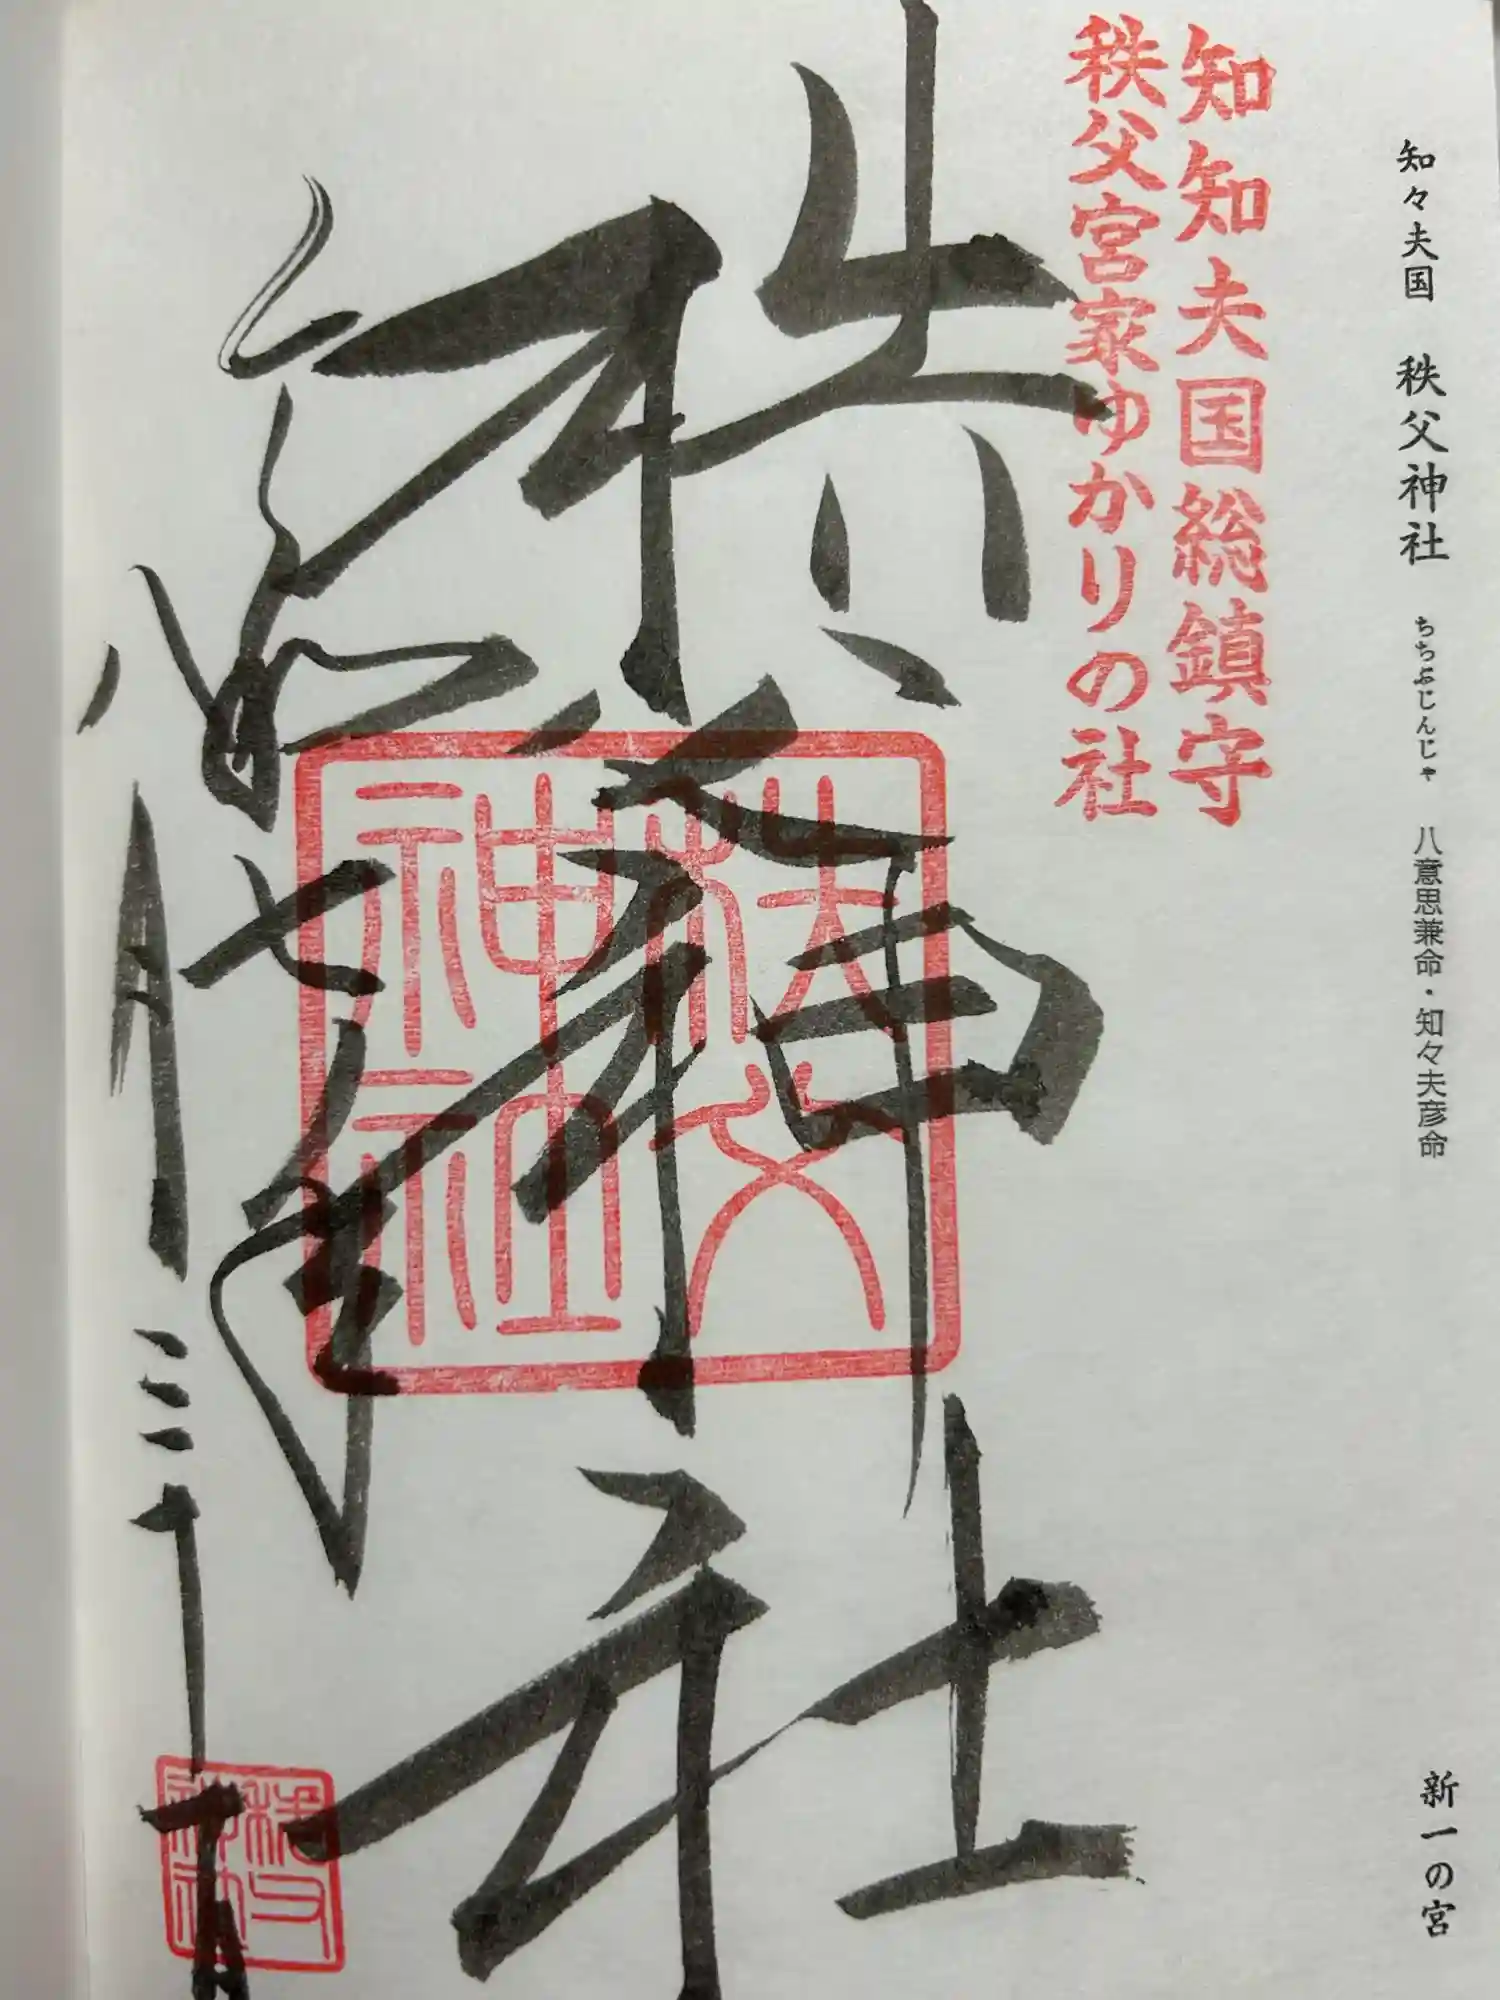 知々夫国 秩父神社 ちちぶじんじゃ 八意思兼命・知々夫彦命 新一の宮
知知夫国総鎮守
秩父宮家ゆかりの社
秩父神社
秩父
神社
令和七年
八月三十一日
秩父
神社